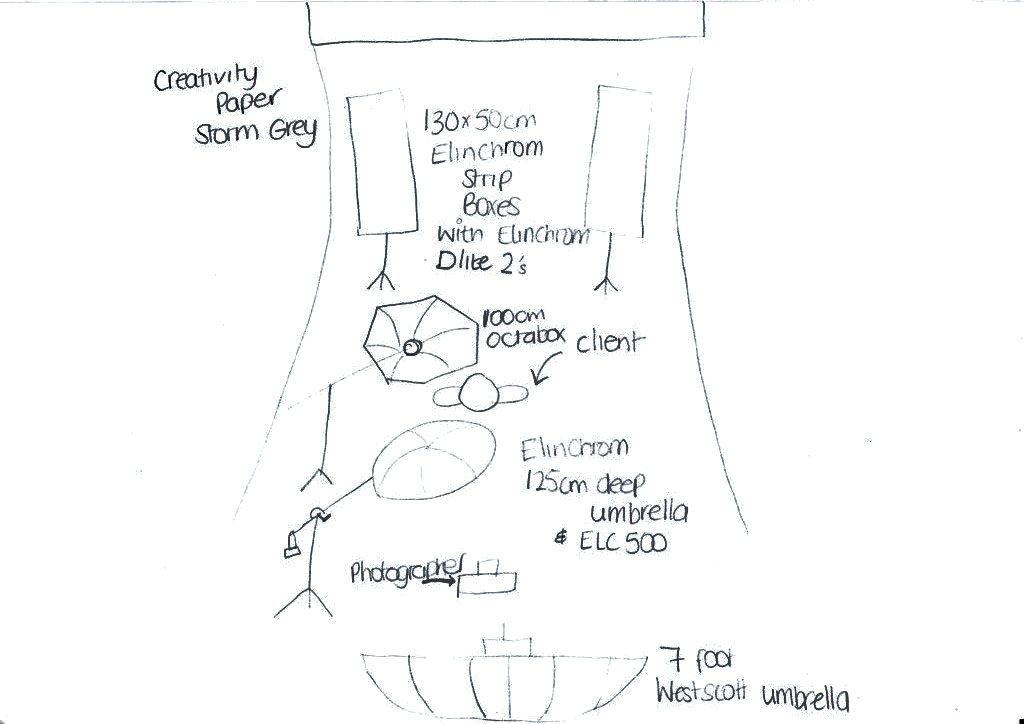 Creativity
Paper
Storm Grey
130x50cm
Elinchrom
Strip
Boxes
With Elinchrom
Dlite 2's
100cm
octabox
client
Elinchrom
125cm deep
umbrella
& ELC 500
Photographer
7 foot
Westscott umbrella